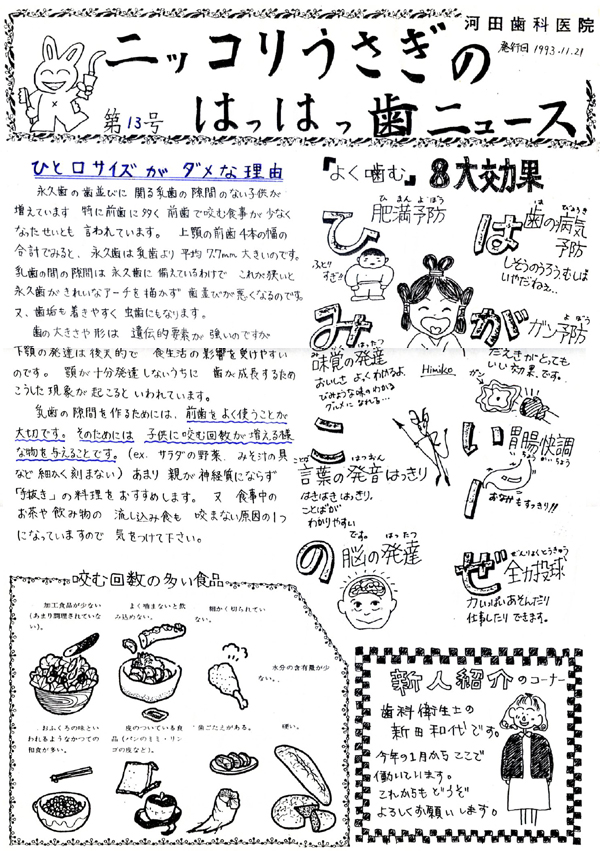 河田歯科医院
発行日 1993.11.21
ニッコリうさぎの
はっはっ歯ニュース
第13号
ひと口サイズが ダメな理由
永久歯の歯並びに 関る乳歯の隙間のない子供が
増えています 特に前歯に多く 前歯で咬む食事が少なく
なったせいとも 言われています。 上顎の前歯4本の幅の
合計でみると、永久歯は乳歯より 平均7.7mm 大きいのです。
乳歯の間の隙間は 永久歯に 備えているわけで これが狭いと
永久歯がきれいなアーチを描かず 歯並びが悪くなるのです。
又、歯垢も着きやすく 虫歯にもなります。
歯の大きさや形は 遺伝的要素が 強いのですが
下顎の発達は後天的で 食生活の影響を受けやすい
のです。 顎が十分発達しないうちに 歯が成長するため
こうした現象が 起こると いわれています。
乳歯の隙間を作るためには、前歯をよく使うことが
大切です。そのためには 子供に咬む回数が増える様
な物を与えることです。(ex. サラダの野菜、みそ汁の具
など細かく刻まない) あまり 親が神経質にならず
「手抜き」の料理をおすすめします。 又 食事中の
お茶や飲み物の 流し込み食も 咬まない原因の1つ
になっていますので 気をつけて下さい。
『よく噛む』8大効果
ひ
ひまんよぼう
肥満予防
ふとり
すぎ
み
みかく はったつ
味覚の発達
おいしさ よくわかるよ
びみょうな味のわかる
グルメに なれる…
Himiko
こ
ことば はつおん
言葉の発音はっきり
はきはき はっきり。
ことばが
わかりやすい
です。
の
はったつ
脳の発達
は
は びょうき
歯の病気
予防
しそうのうろうむしは
いやだねぇ…
が
よぼう
ガン予防
だえきがとっても
いい効果です。
ガン
い
いちょうかいちょう
胃腸快調
おなかもすっきり!!
ー
ぜ
ぜんりょくとうきゅう
全力投球
力いっぱいあそんだり
仕事したり できます。
咬む回数の多い食品
加工食品が少ない
(あまり調理されていな
い)。
よく噛まないと飲
み込めない。
細かく切られてい
ない。
水分の含有量が少
ない。
おふくろの味とい
われるようなかつての
和食が多い。
皮のついている食
品(パンのミミ・リン
ゴの皮など)。
歯ごたえがある。
硬い。
新人紹介のコーナー
歯科衛生士の
新田和代です。
今年の1月から ここで
働いています。
これからも どうぞ
よろしくお願いします。